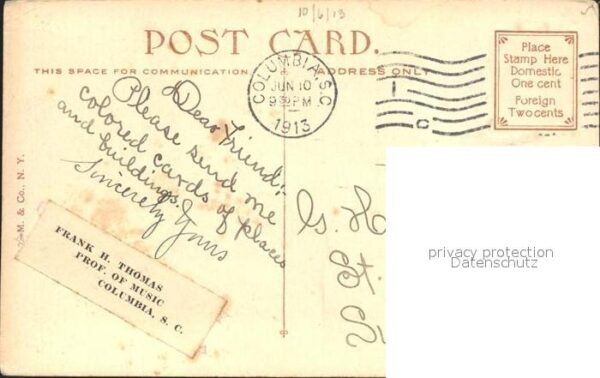 10/6/13
POST CARD.
THIS SPACE FOR COMMUNICATION
ADDRESS ONLY
COLUMBIA, S.C.
JUN 10
9 30 PM
1913
C
Place
Stamp Here
Domestic
One cent
Foreign
Two cents
Dear Friend:-
Please send me
colored cards of places
and buildings.
Sincerely Yours
FRANK H. THOMAS
PROF. OF MUSIC
COLUMBIA, S. C.
M. & Co., N. Y.
G. H
St.
privacy protection
Datenschutz